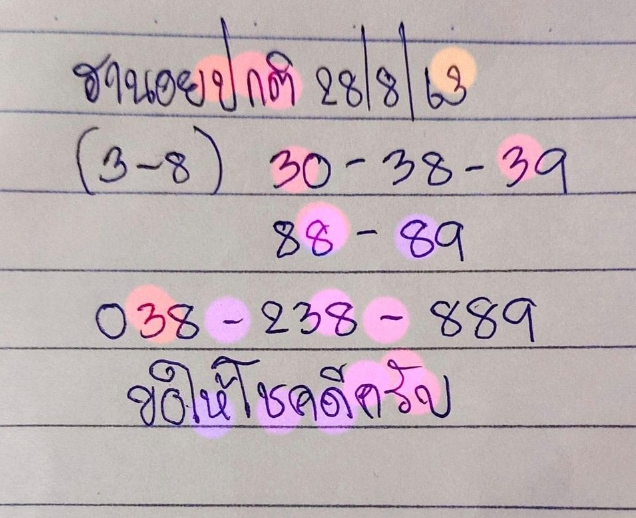 ฮานอยปกติ 28/8/63
(3-8) 30-38-39
88-89
038-238-889
ขอให้โชคดีครับ